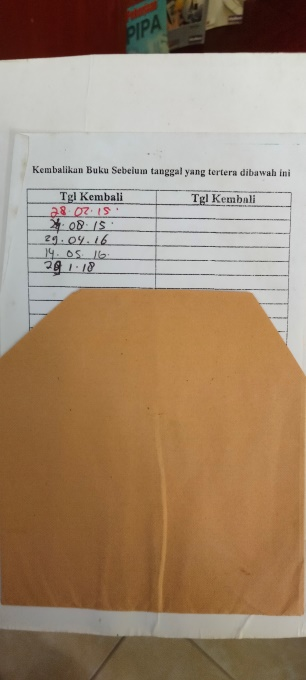 PIPA
Kembalikan Buku Sebelum tanggal yang tertera dibawah ini
Tgl Kembali Tgl Kembali
28 02.15
08.15
29.04.16
14.05 16
1.18